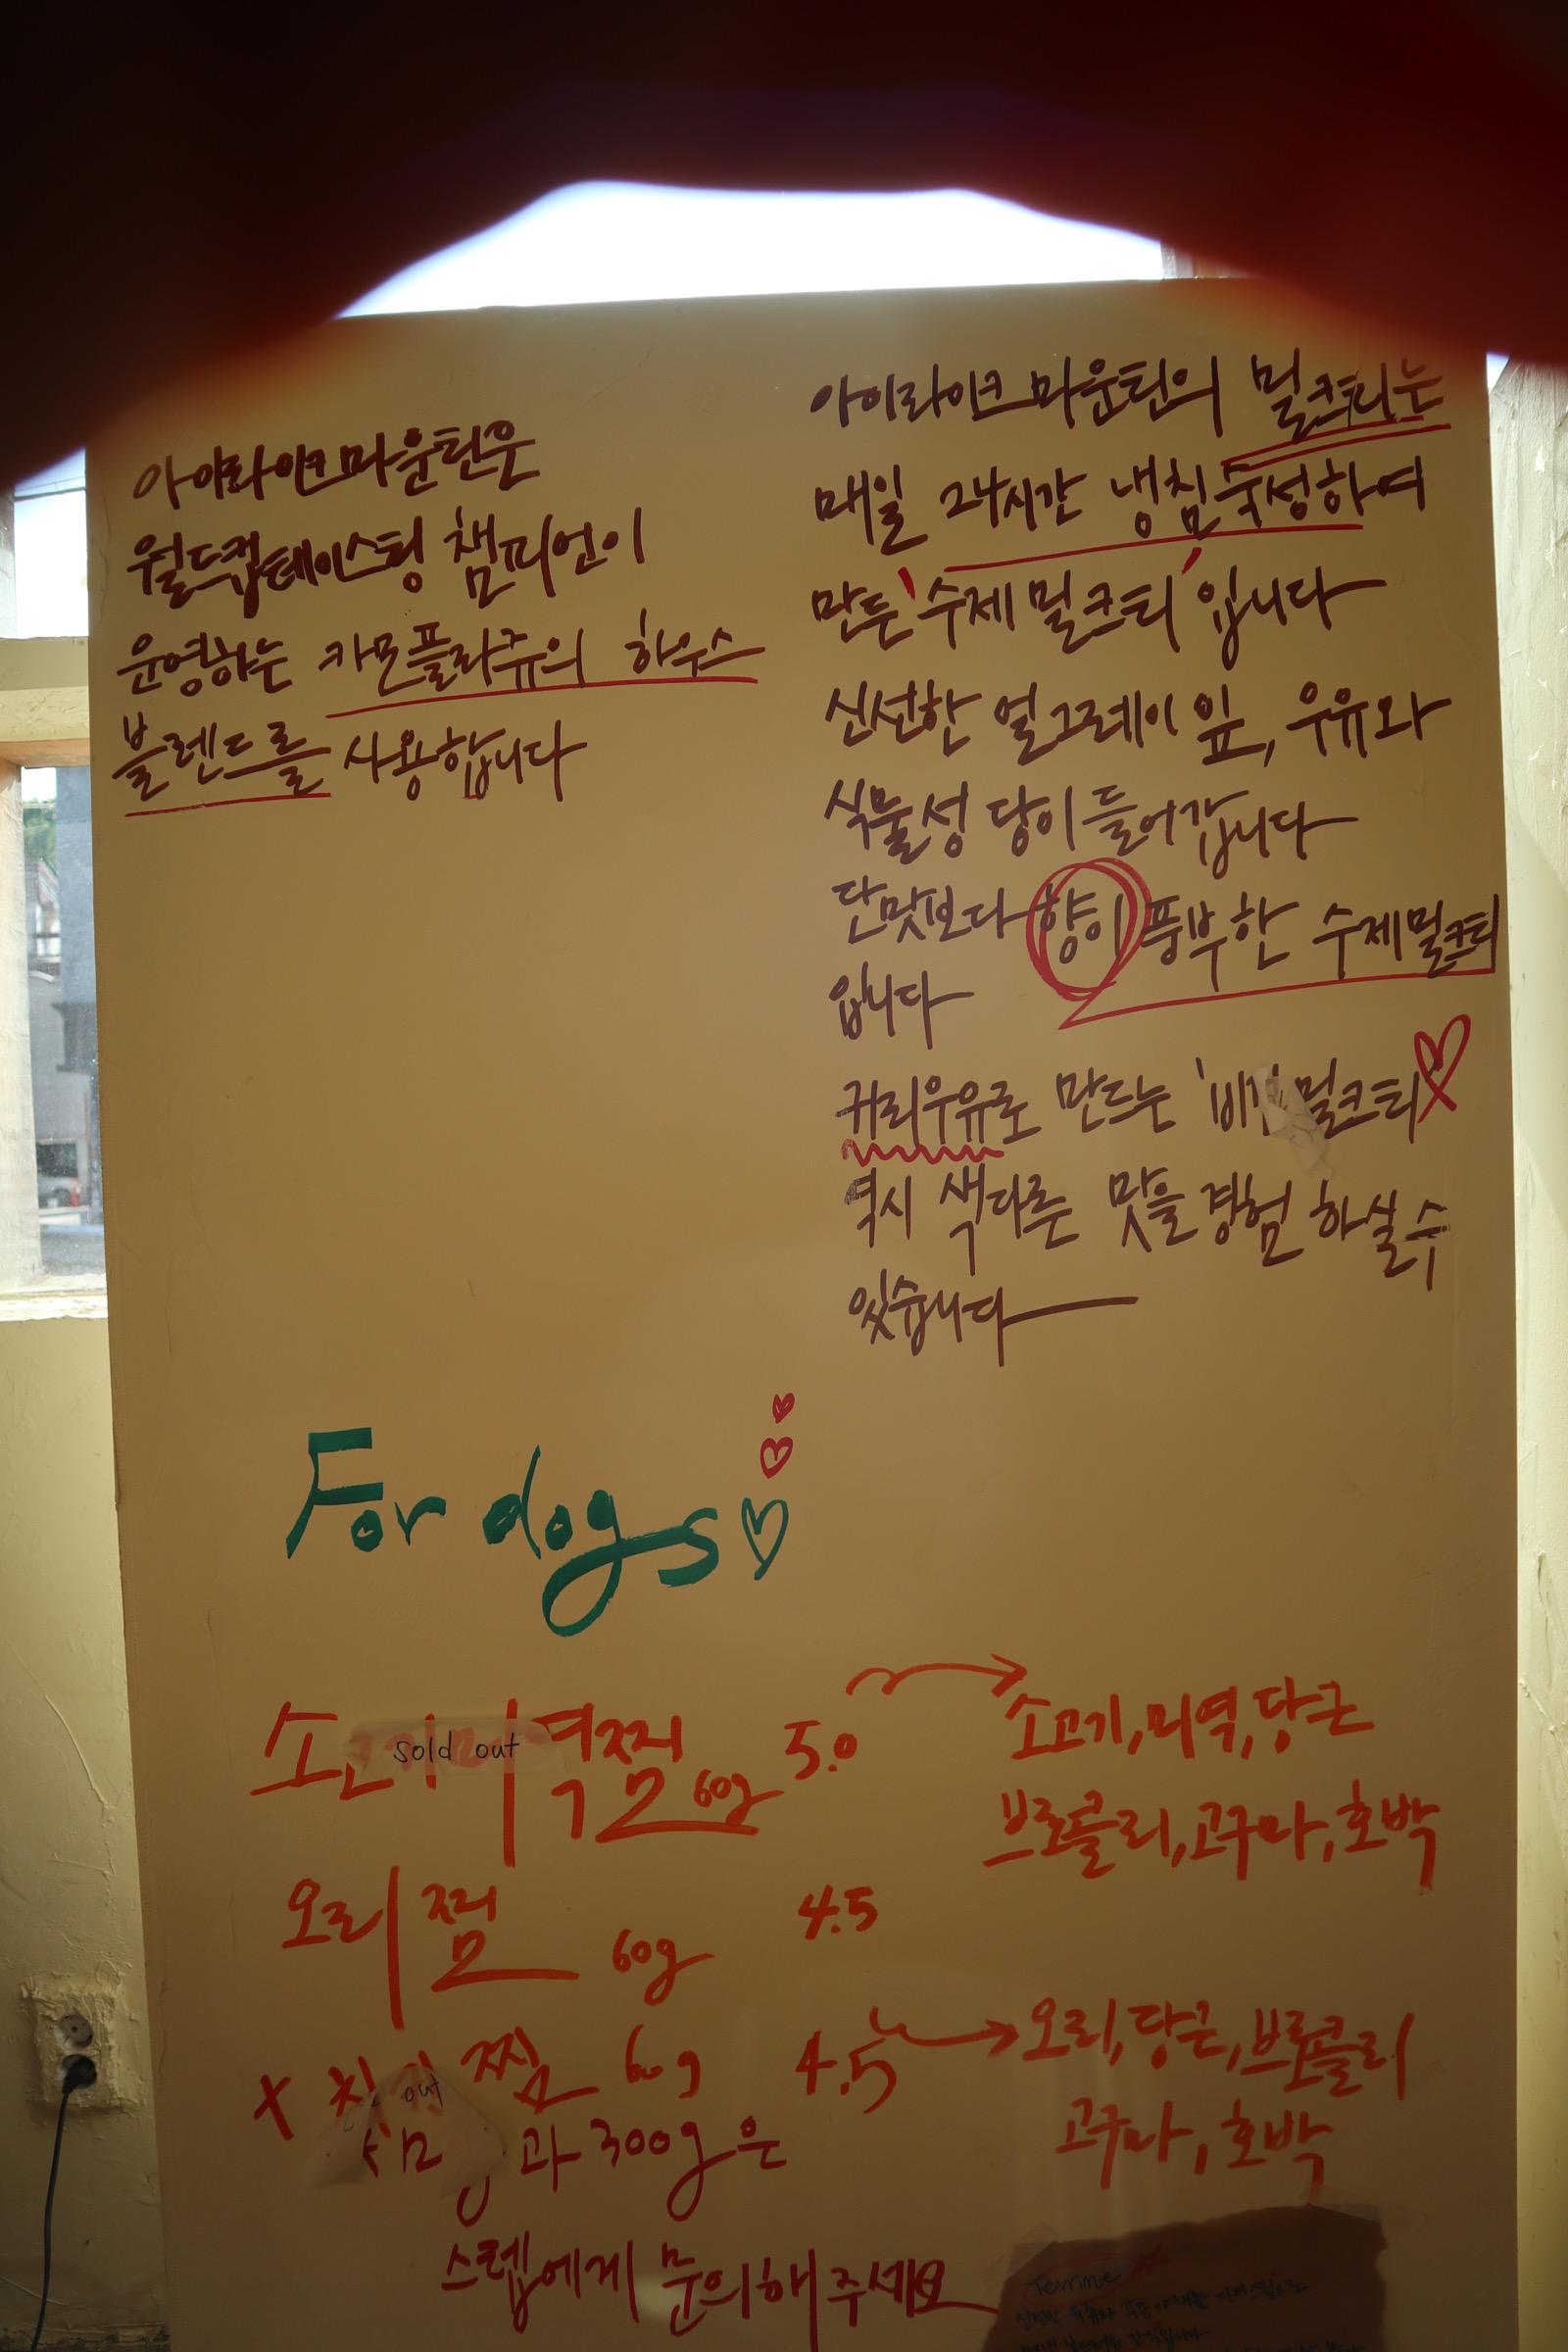 아이라이크마운틴은
월드컵테이스팅 챔피언이
운영하는 카모플라쥬의 하우스
블렌드를 사용합니다
아이라이크마운틴의 밀크티는
매일 24시간 냉침숙성하여
만든 '수제밀크티' 입니다
신선한 얼그레이 잎, 우유와
식물성 당이 들어갑니다
단맛보다 향이 풍부한 수제밀크티
입니다
귀리우유로 만드는 '비건 밀크티
역시 색다른 맛을 경험 하실 수
있습니다
For dogs
소고기미역찜 60g 5.0
sold out
소고기, 미역, 당근
브로콜리, 고구마, 호박
오리찜 60g 4.5
x 찜 60g 4.5
out
오리, 당근, 브로콜리
고구마, 호박
과 300g은
스텝에게 문의해주세요
Terrine